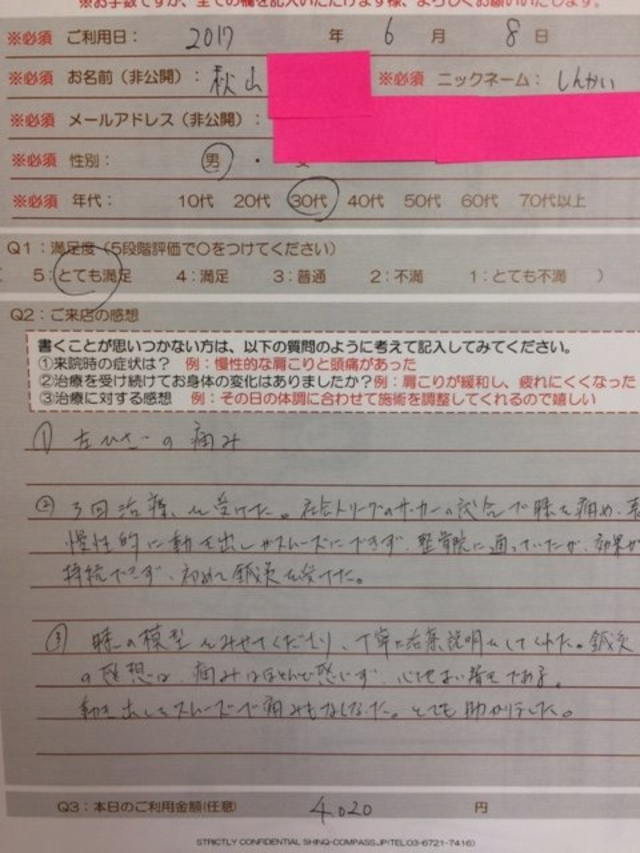 ※お手数ですが、全ての欄を記入いただけます様、よろしくお願いいたします。
※必須 ご利用日： 2017 年 6 月 8 日
※必須 お名前（非公開）： 秋山 ※必須 ニックネーム： しんかい
※必須 メールアドレス（非公開）：
※必須 性別： 男 ・
※必須 年代： 10代 20代 30代 40代 50代 60代 70代以上
Q1：満足度（5段階評価で〇をつけてください）
5：とても満足 4：満足 3：普通 2：不満 1：とても不満 ）
Q2：ご来店の感想
書くことが思いつかない方は、以下の質問のように考えて記入してみてください。
①来院時の症状は？ 例：慢性的な肩こりと頭痛があった
②治療を受け続けてお身体の変化はありましたか？例：肩こりが緩和し、疲れにくくなった
③治療に対する感想 例：その日の体調に合わせて施術を調整してくれるので嬉しい
① 左ひざの痛み
② 3回治療を受けた。社会人リーグのサッカーの試合で膝を痛め、
慢性的に動き出しがスムーズにできず、整骨院に通っていたが、効果が
持続できず、初めて鍼灸を受けた。
③ 膝の模型をみせてくださり、丁寧に治療説明をしてくれた。鍼灸
の感想は、痛みはほとんど感じず、心地よい着きである。
動き出しもスムーズで痛みもなくなった。とても助かりました。
Q3：本日のご利用金額(任意) 4,020 円
STRICTLY CONFIDENTIAL SHINQ-COMPASS.JP(TEL03-6721-7416)